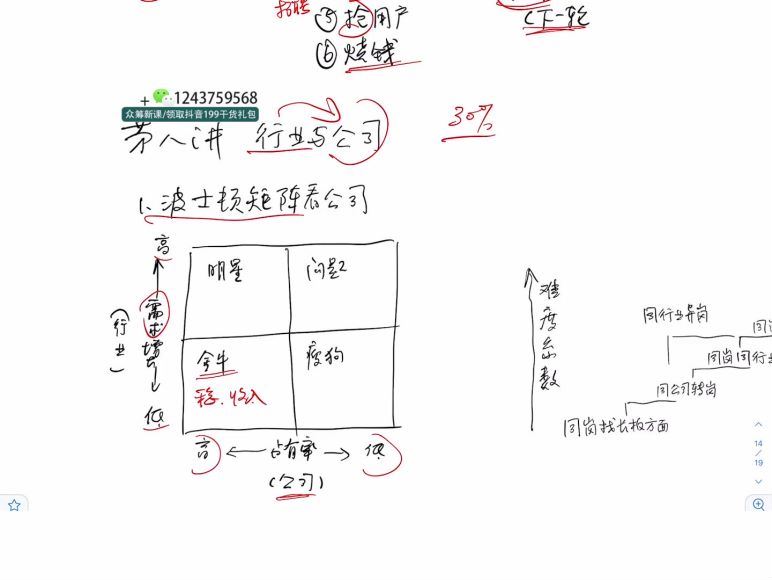 招聘
⑤ 抢用户
(下一轮
⑥ 烧钱
+ 1243759568
众筹新课/领取抖音199干货礼包
第八讲 行业与公司
30%
1、波士顿矩阵看公司
高
明星
问题
需求增长
(行业)
难度系数
同行业异岗
金牛
瘦狗
同岗同行业
稳.收入
同公司转岗
低
同岗找长板方面
高 ← 占有率 → 低
(公司)
14
/
19